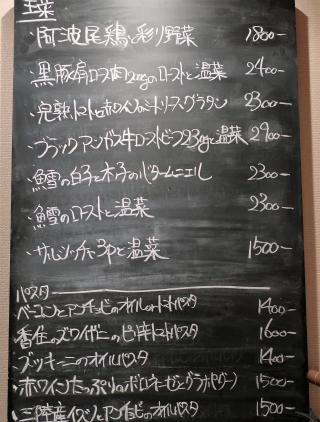 主菜
・阿波尾鶏と彩り野菜 1800-
・黒豚肩ロース肉120gのローストと温菜 2400-
・完熟トマトと赤ワインのミートソースグラタン 2300-
・ブラックアンガス牛ローストビーフ23gと温菜 2900-
・鱈の白子と木の子のバタームニエル 2300-
・鱈のローストと温菜 2300-
・サルシッチャ3Pと温菜 1500-
パスタ
・ベーコンとアンチョビのオイルのトマトパスタ 1400-
・香住のズワイガニのピリ辛トマトパスタ 1600-
・ズッキーニのオイルパスタ 1400-
・赤ワインたっぷりのボロネーゼ(グラナパダーノ) 1500-
・三陸産イワシとアンチョビのオイルパスタ 1500-